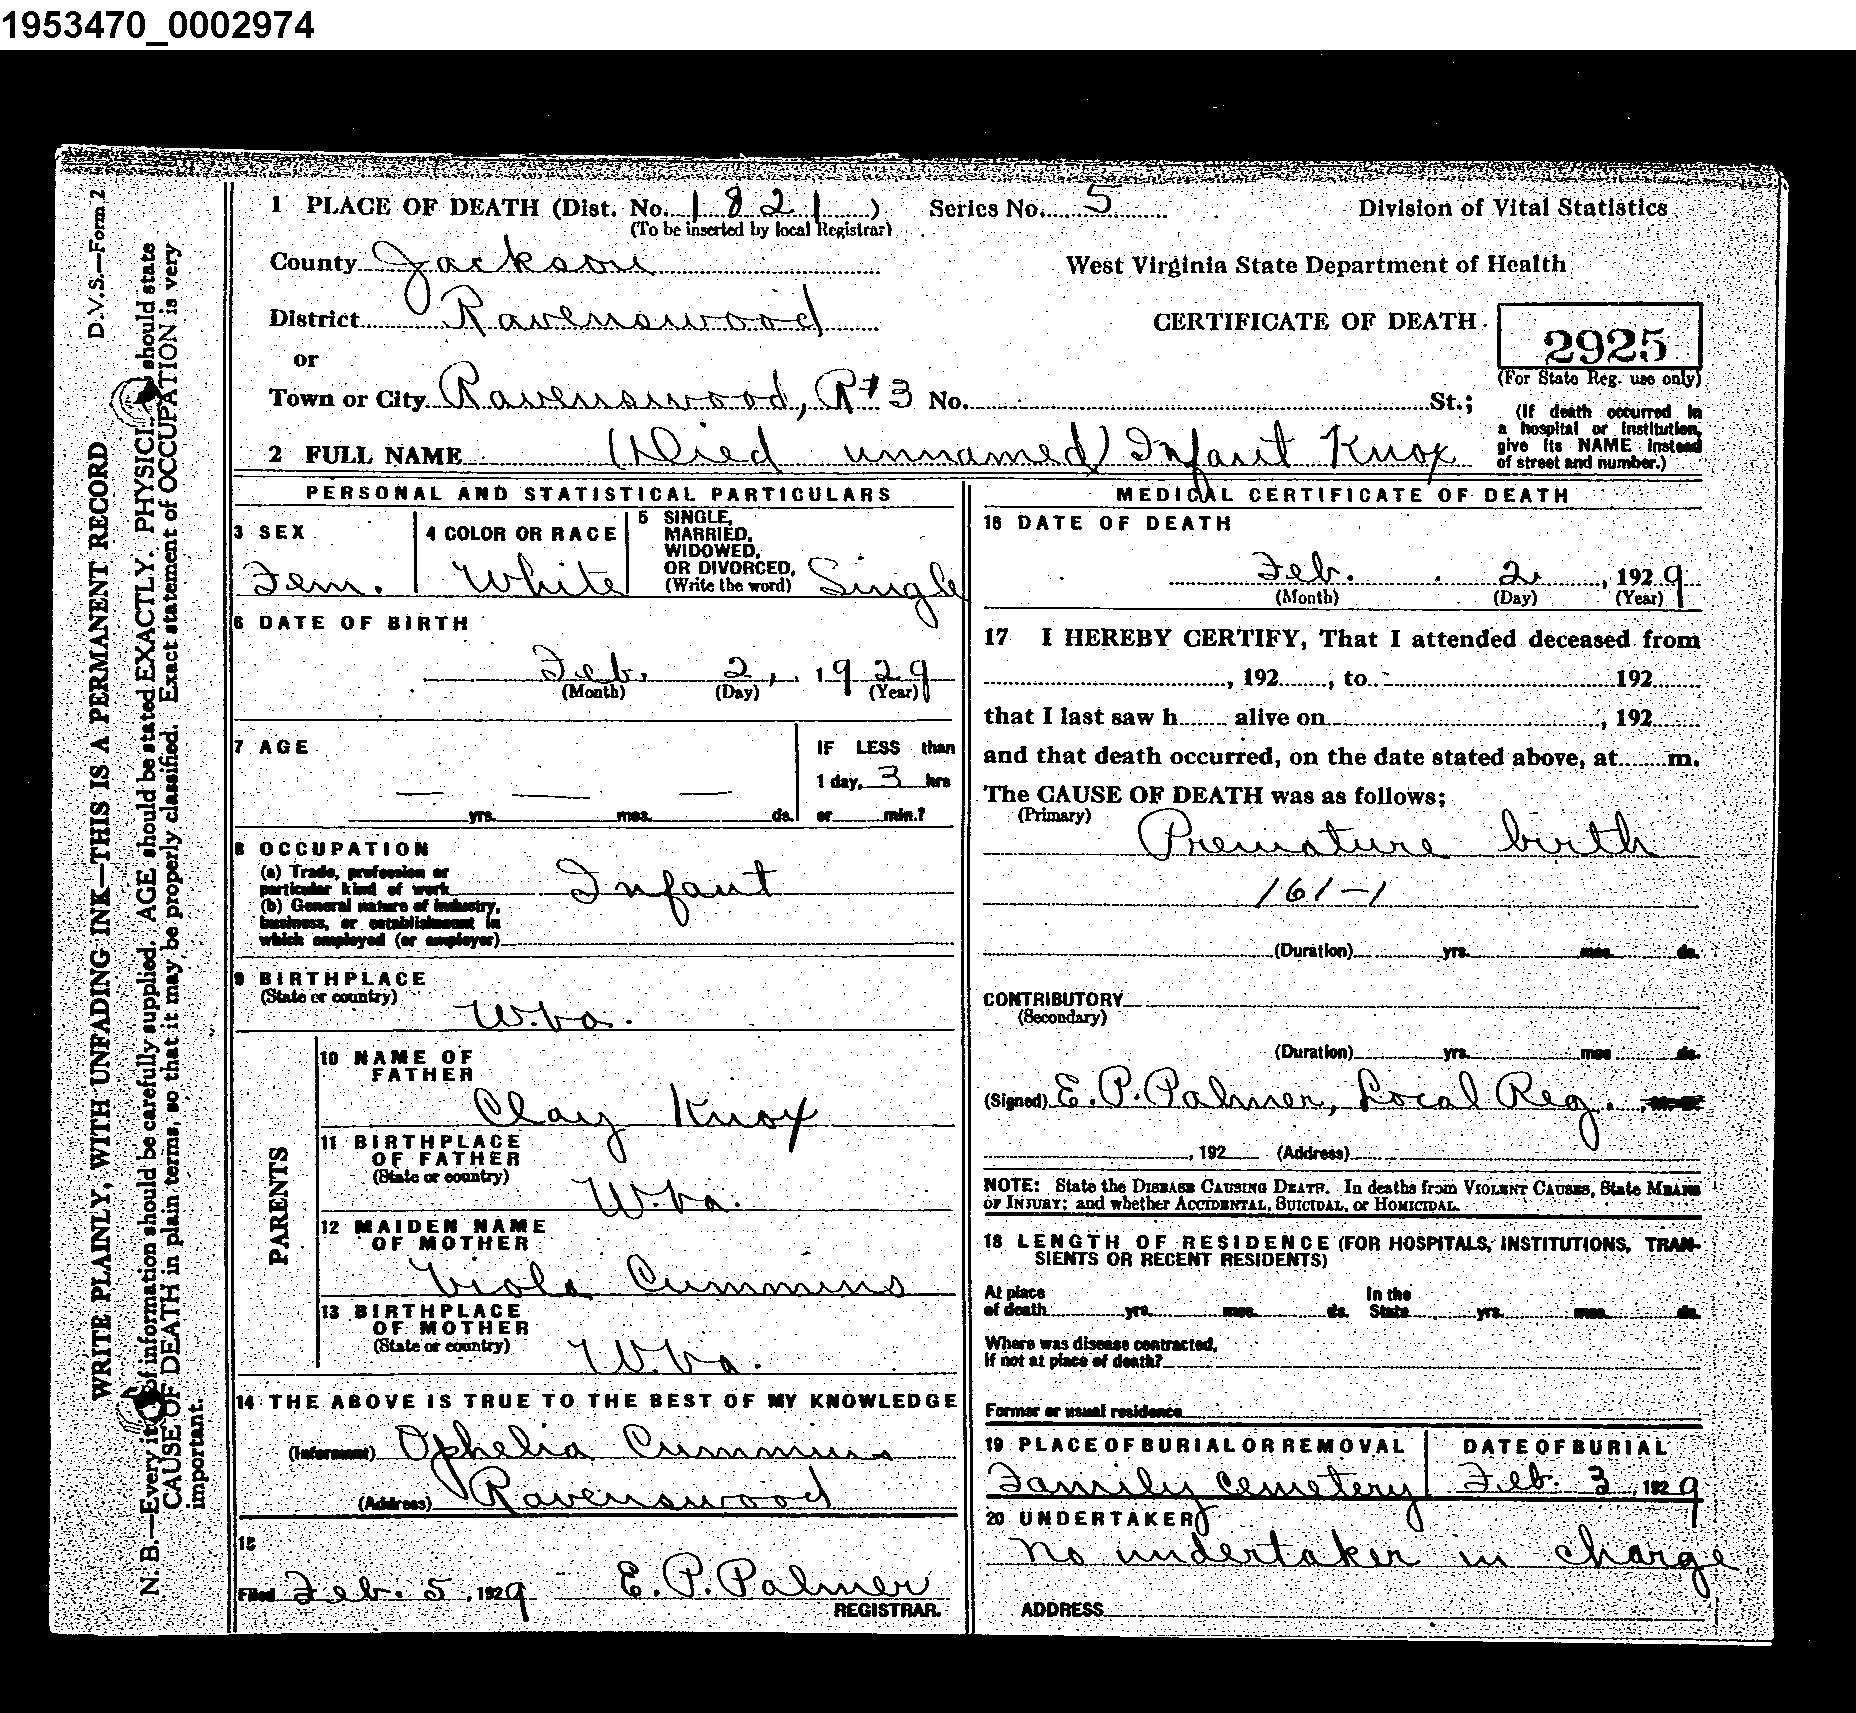 1953470_0002974
D.V.S.—Form 2
WRITE PLAINLY, WITH UNFADING INK—THIS IS A PERMANENT RECORD
N. B.—Every it of information should be carefully supplied. AGE should be stated EXACTLY. PHYSICI should state
CAUSE OF DEATH in plain terms, so that it may be properly classified. Exact statement of OCCUPATION is very
important.
1 PLACE OF DEATH (Dist. No. 1821) Series No. 5 Division of Vital Statistics
(To be inserted by local Registrar)
County Jackson West Virginia State Department of Health
District Ravenswood CERTIFICATE OF DEATH 2925
or
(For State Reg. use only)
Town or City Ravenswood, R#3 No. St.; (If death occurred in
a hospital or institution,
give its NAME instead
of street and number.)
2 FULL NAME (Died unnamed) Infant Knox
PERSONAL AND STATISTICAL PARTICULARS
3 SEX
Fem.
4 COLOR OR RACE
White
5 SINGLE,
MARRIED,
WIDOWED,
OR DIVORCED,
(Write the word) Single
6 DATE OF BIRTH
Feb. 2, 1929
(Month) (Day) (Year)
7 AGE
— — —
yrs. mos. ds.
IF LESS than
1 day, 3 hrs
or min.?
8 OCCUPATION
(a) Trade, profession or
particular kind of work Infant
(b) General nature of industry,
business, or establishment in
which employed (or employer)
9 BIRTHPLACE
(State or country)
W.Va.
PARENTS
10 NAME OF
FATHER
Clay Knox
11 BIRTHPLACE
OF FATHER
(State or country)
W.Va.
12 MAIDEN NAME
OF MOTHER
Viola Cummins
13 BIRTHPLACE
OF MOTHER
(State or country)
W.Va.
14 THE ABOVE IS TRUE TO THE BEST OF MY KNOWLEDGE
(Informant) Ophelia Cummins
(Address) Ravenswood
15
Filed Feb. 5, 1929 E. P. Palmer
REGISTRAR.
MEDICAL CERTIFICATE OF DEATH
16 DATE OF DEATH
Feb. 2, 1929
(Month) (Day) (Year)
17 I HEREBY CERTIFY, That I attended deceased from
, 192 , to 192
that I last saw h alive on , 192
and that death occurred, on the date stated above, at m.
The CAUSE OF DEATH was as follows:
(Primary)
Premature birth
161-1
(Duration) yrs. mos. ds.
CONTRIBUTORY
(Secondary)
(Duration) yrs. mos ds.
(Signed) E. P. Palmer, Local Reg.
, 192 (Address)
NOTE: State the DISEASE CAUSING DEATH. In deaths from VIOLENT CAUSES, State MEANS
OF INJURY; and whether ACCIDENTAL, SUICIDAL, or HOMICIDAL.
18 LENGTH OF RESIDENCE (FOR HOSPITALS, INSTITUTIONS, TRAN-
SIENTS OR RECENT RESIDENTS)
At place In the
of death yrs. mos. ds. State yrs. mos. ds.
Where was disease contracted,
if not at place of death?
Former or usual residence
19 PLACE OF BURIAL OR REMOVAL
Family Cemetery
DATE OF BURIAL
Feb. 3, 1929
20 UNDERTAKER
No undertaker in charge
ADDRESS